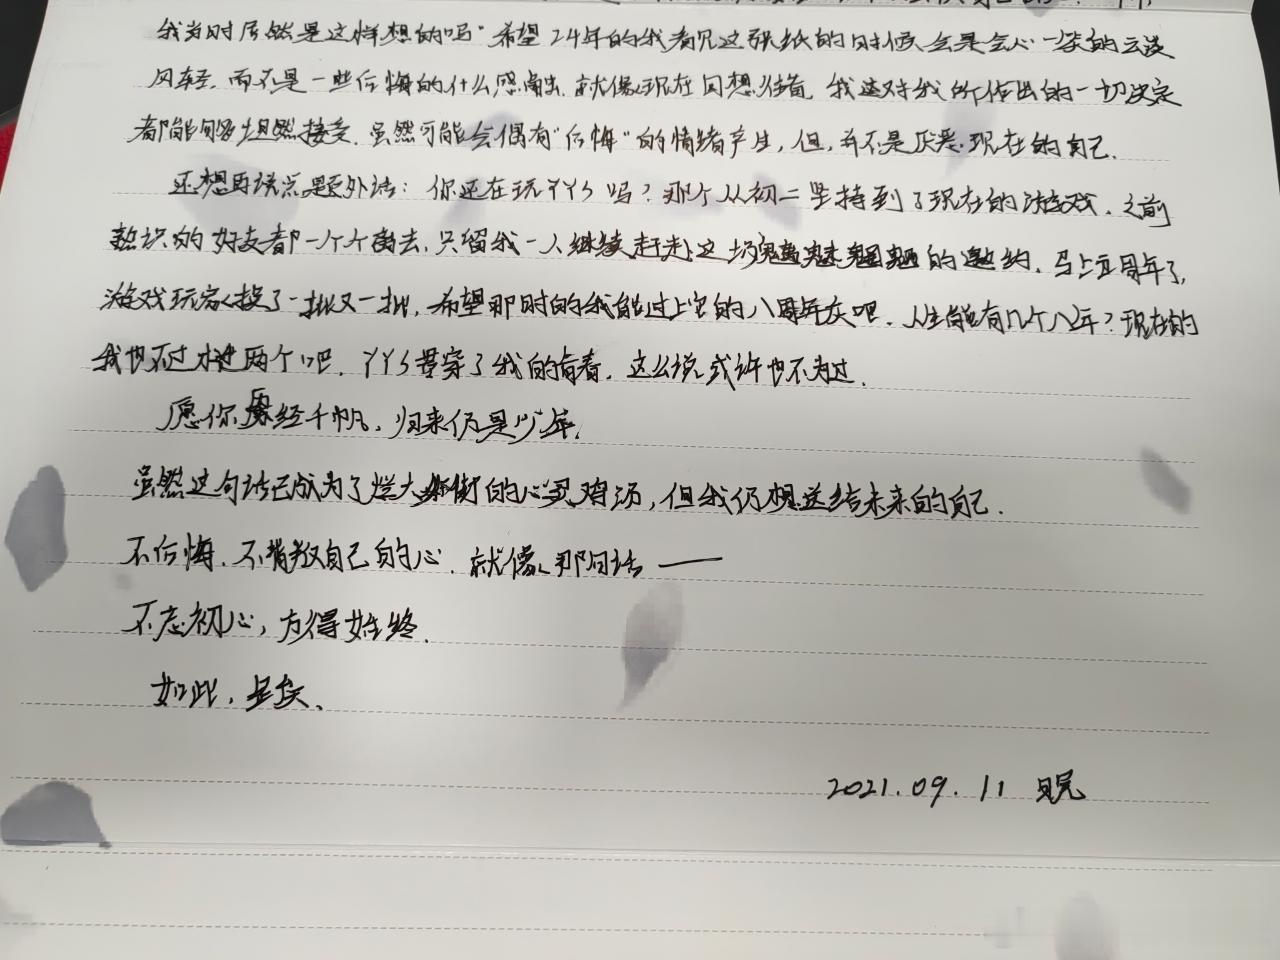 我当时居然是这样想的吗"希望24年的我看见这张纸的时候会是会心一笑的云淡
风轻,而不是一些后悔的什么感慨,就像现在回想往昔,我还对我所作出的一切决定
都能够坦然接受,虽然可能会偶有"后悔"的情绪产生,但,并不是厌恶现在的自己.
还想再谈点题外话:你还在玩YYS吗?那个从初二坚持到了现在的游戏,之前
熟识的好友都一个个离去,只留我一人继续赶赴这场魑魅魍魉的邀约,马上五周年了,
游戏玩家换了一批又一批,希望那时的我能过上它的八周年庆吧,人生能有几个八年?现在的
我也不过才过两个吧,YYS贯穿了我的青春,这么说或许也不为过.
愿你历经千帆,归来仍是少年,
虽然这句话已成为了烂大街的心灵鸡汤,但我仍想送给未来的自己.
不后悔,不背叛自己的心,就像那句话——
不忘初心,方得始终.
如此,足矣、
2021.09.11 晛